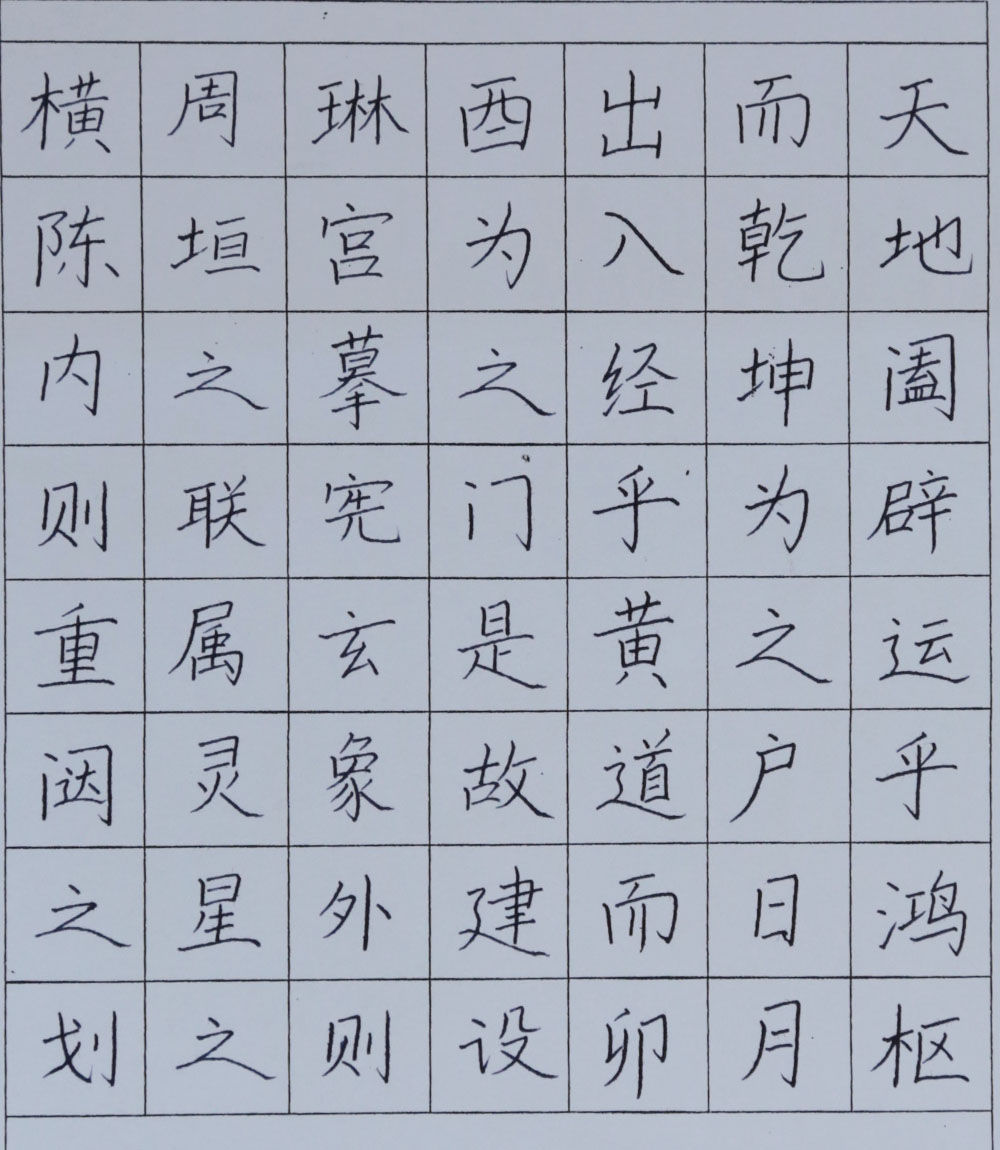 天地阖辟运乎鸿枢
而乾坤为之户日月
出入经乎黄道而卯
酉为之门是故建设
琳宫摹宪玄象外则
周垣之联属灵星之
横陈内则重闼之划